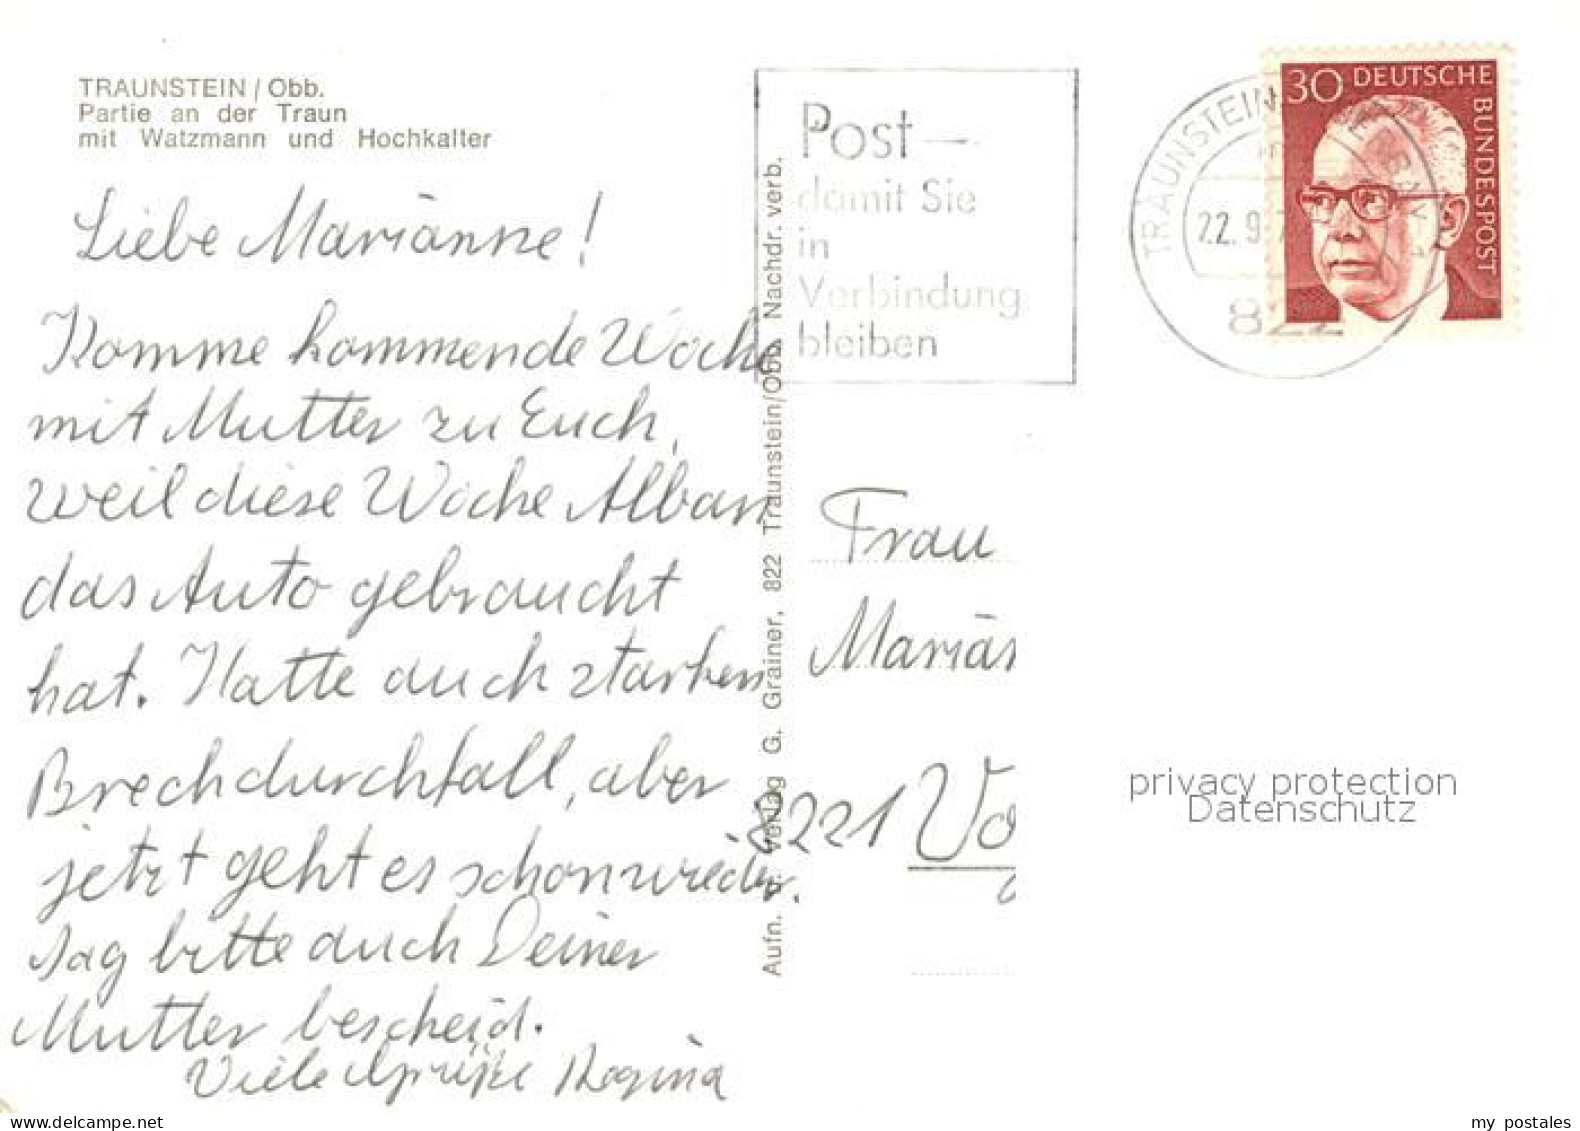 TRAUNSTEIN / Obb.
Partie an der Traun
mit Watzmann und Hochkalter
Liebe Marianne!
Komme kommende Woche
mit Mutter zu Euch,
weil diese Woche Alban
das Auto gebraucht
hat. Hatte auch starken
Brechdurchfall, aber
jetzt geht es schon wieder.
Sag bitte auch Deiner
Mutter bescheid.
Viele Grüße Regina
Aufn. u. Verlag G. Grainer, 822 Traunstein/Obb. Nachdr. verb.
Post —
damit Sie
in
Verbindung
bleiben
TRAUNSTEIN
22. 9. 7
822
30 DEUTSCHE
BUNDESPOST
Frau
Marian
8221 Vo
privacy protection
Datenschutz
www.delcampe.net
my postales